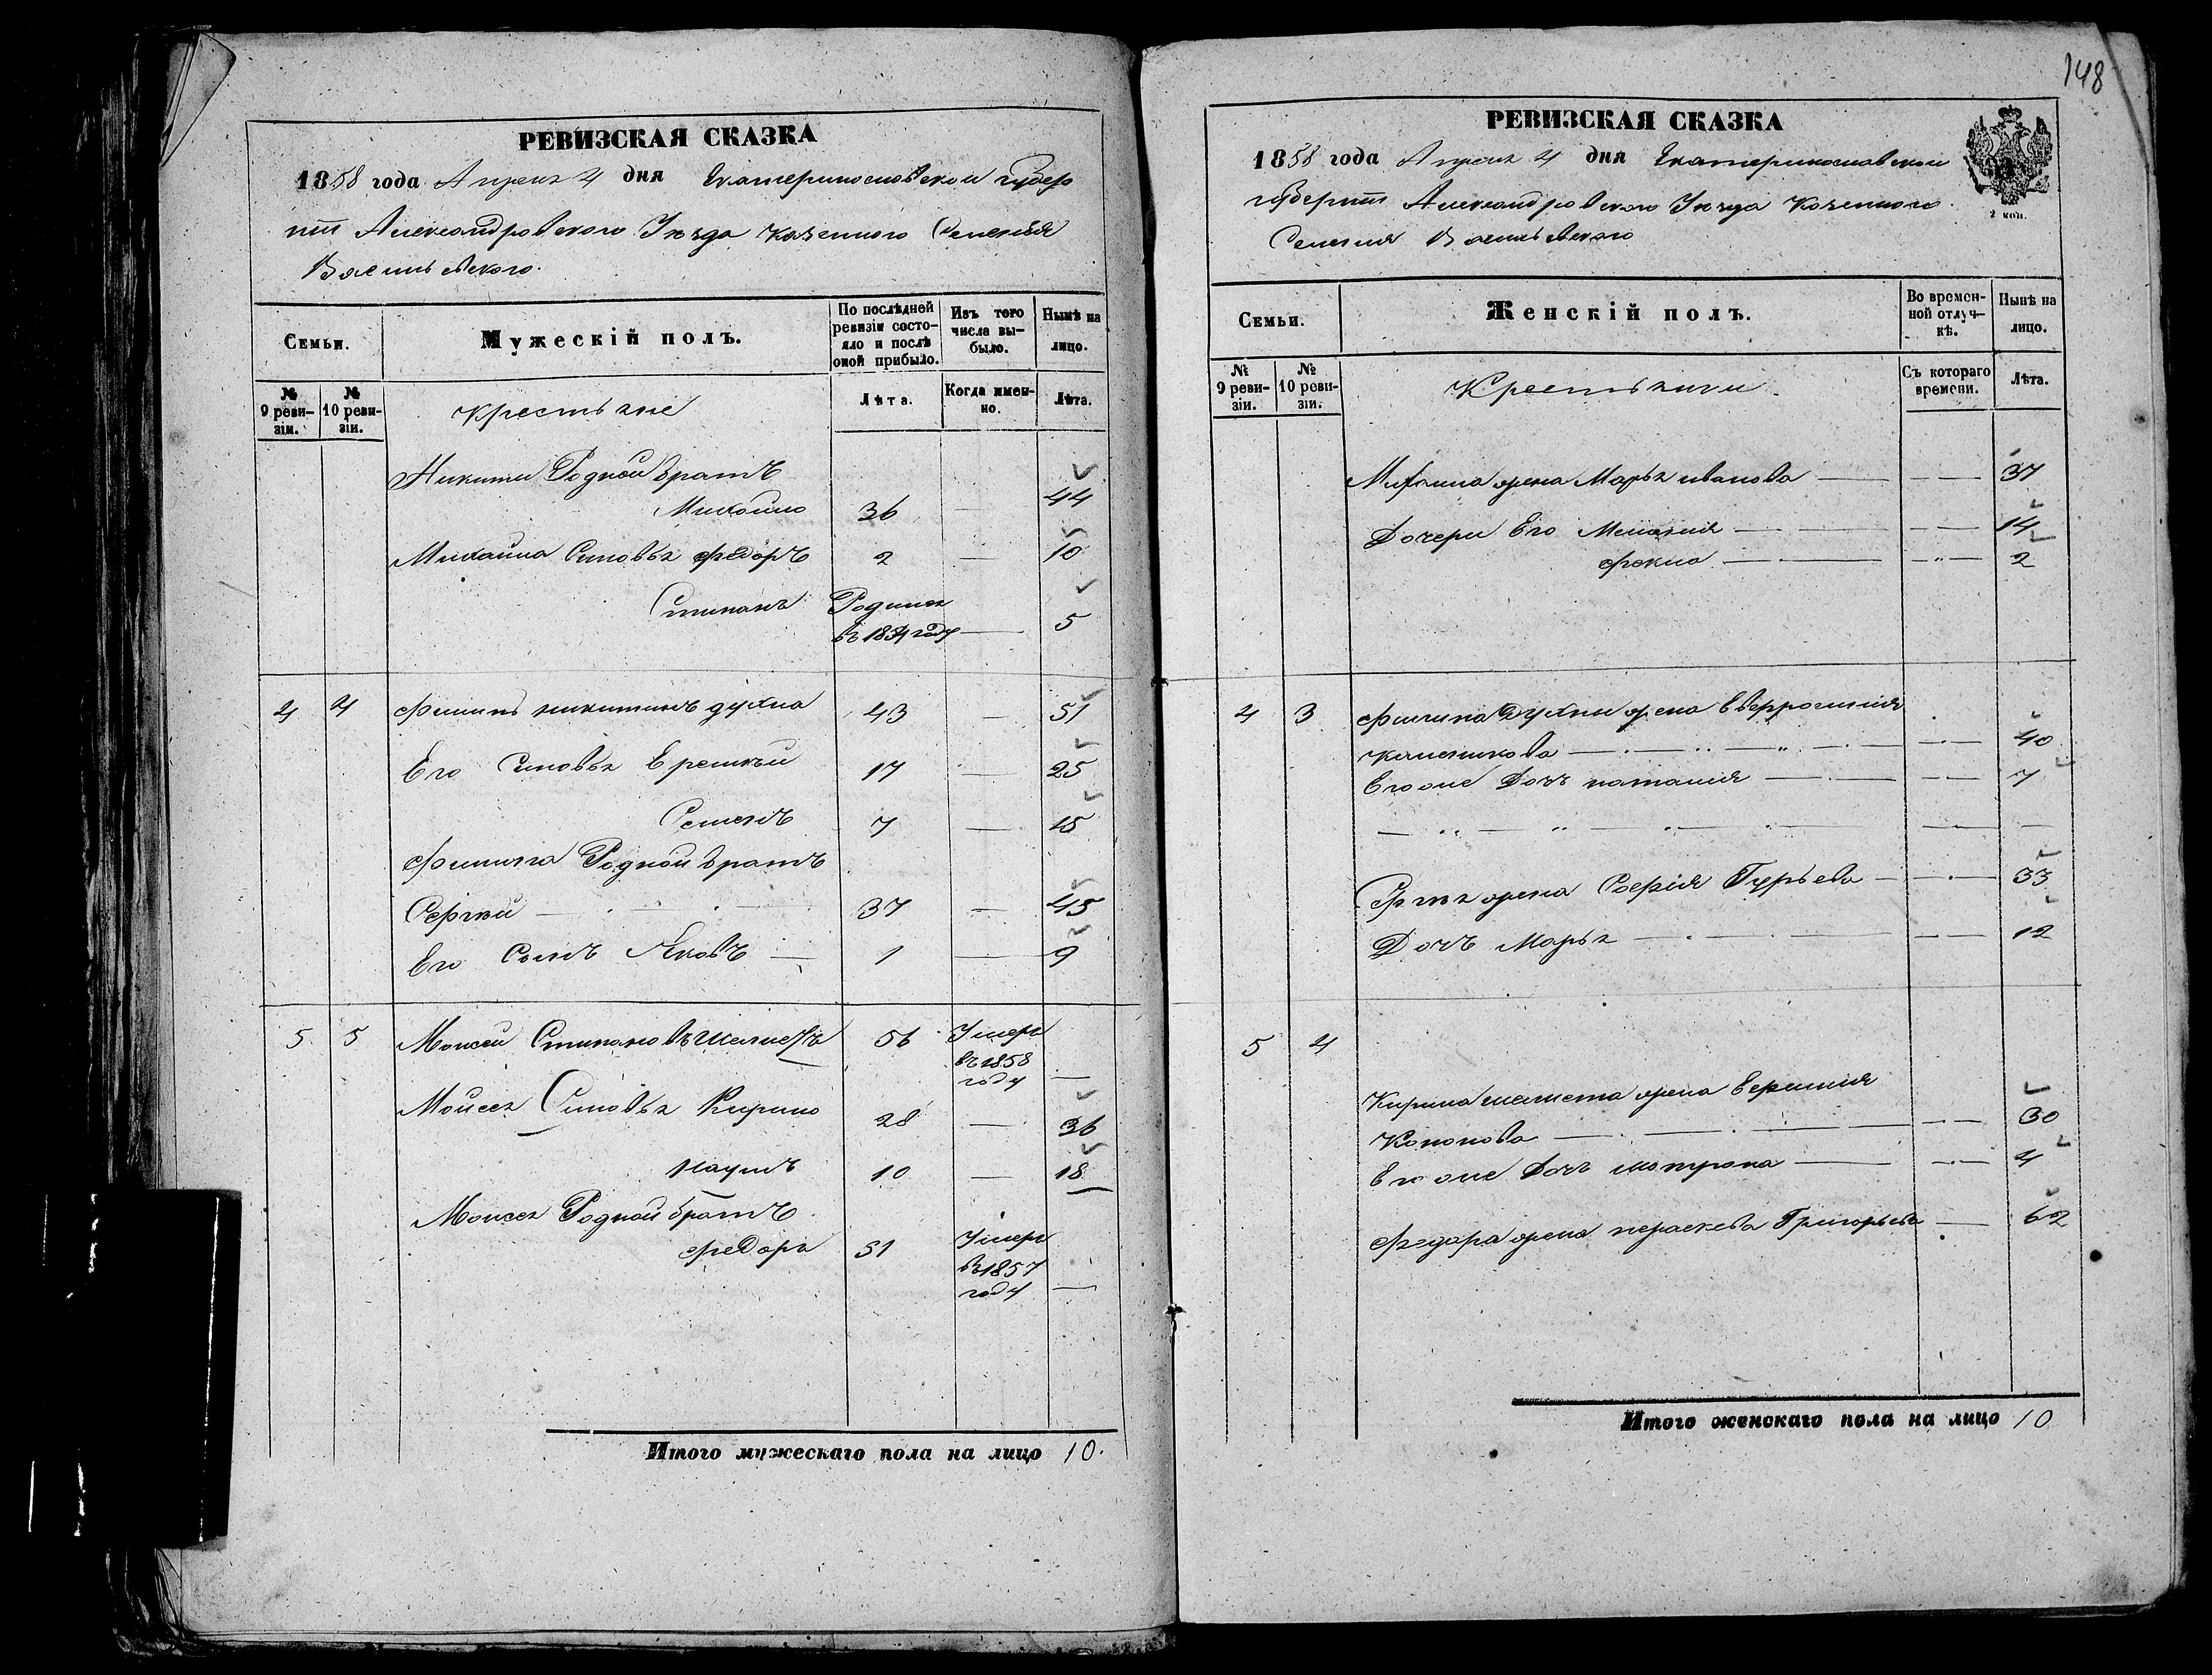 РЕВИЗСКАЯ СКАЗКА
1858 года Апреля 4 дня Екатеринославской губер
нии Александровского Уезда казенного Селения
Васильевского.
Семьи.
Мужескій полъ.
По послѣдней ревизіи состояло и послѣ оной прибыло.
Изъ того числа выбыло.
Нынѣ на лицо.
№ 9 ревизіи.
№ 10 ревизіи.
крестьяне
Лѣта.
Когда именно.
Лѣта.
Никиты Родной братъ
Михайло 36 — 44
Михайла Сыновья федоръ 2 — 10
Стипанъ Родился
въ 1854 году — 5
4 4 Филипъ никитинъ духна 43 — 51
Его Сыновья Еремѣй 17 — 25
Семенъ 7 — 15
Филипа Родной братъ
Сергѣй — 37 — 45
Его Сынъ Яковъ — 1 — 9
5 5 Моисей Стипановъ 56 Умеръ
въ 1858
году —
Моисея Сыновья Кирило 28 — 36
Наумъ 10 — 18
Моисея Родной братъ
федоръ 51 Умеръ
въ 1857
году —
Итого мужескаго пола на лицо 10.
148
РЕВИЗСКАЯ СКАЗКА
1858 года Апреля 4 дня Екатеринославской
губернии Александровского Уезда Казенного
Селения Васильевского
2 коп.
Семьи.
Женскій полъ.
Во временной отлучкѣ.
Нынѣ на лицо.
№ 9 ревизіи.
№ 10 ревизіи.
Крестьянки
Съ котораго времени.
Лѣта.
Михаила жена Марья иванова — — 37
Дочери Его Мелания — — 14
фекла — — 2
4 3 Филипа Духны жена Евфросиния
— — 40
Его оне Дочь наталия — — 7
Сергѣя жена Софія Гурьева — — 33
Дочь Марья — — 12
5 4
Кирила жена Ефимия
Кононова — — 30
Его оне Дочь мотрона — — 4
Федора жена параскева Григорьева — 62
Итого женскаго пола на лицо 10